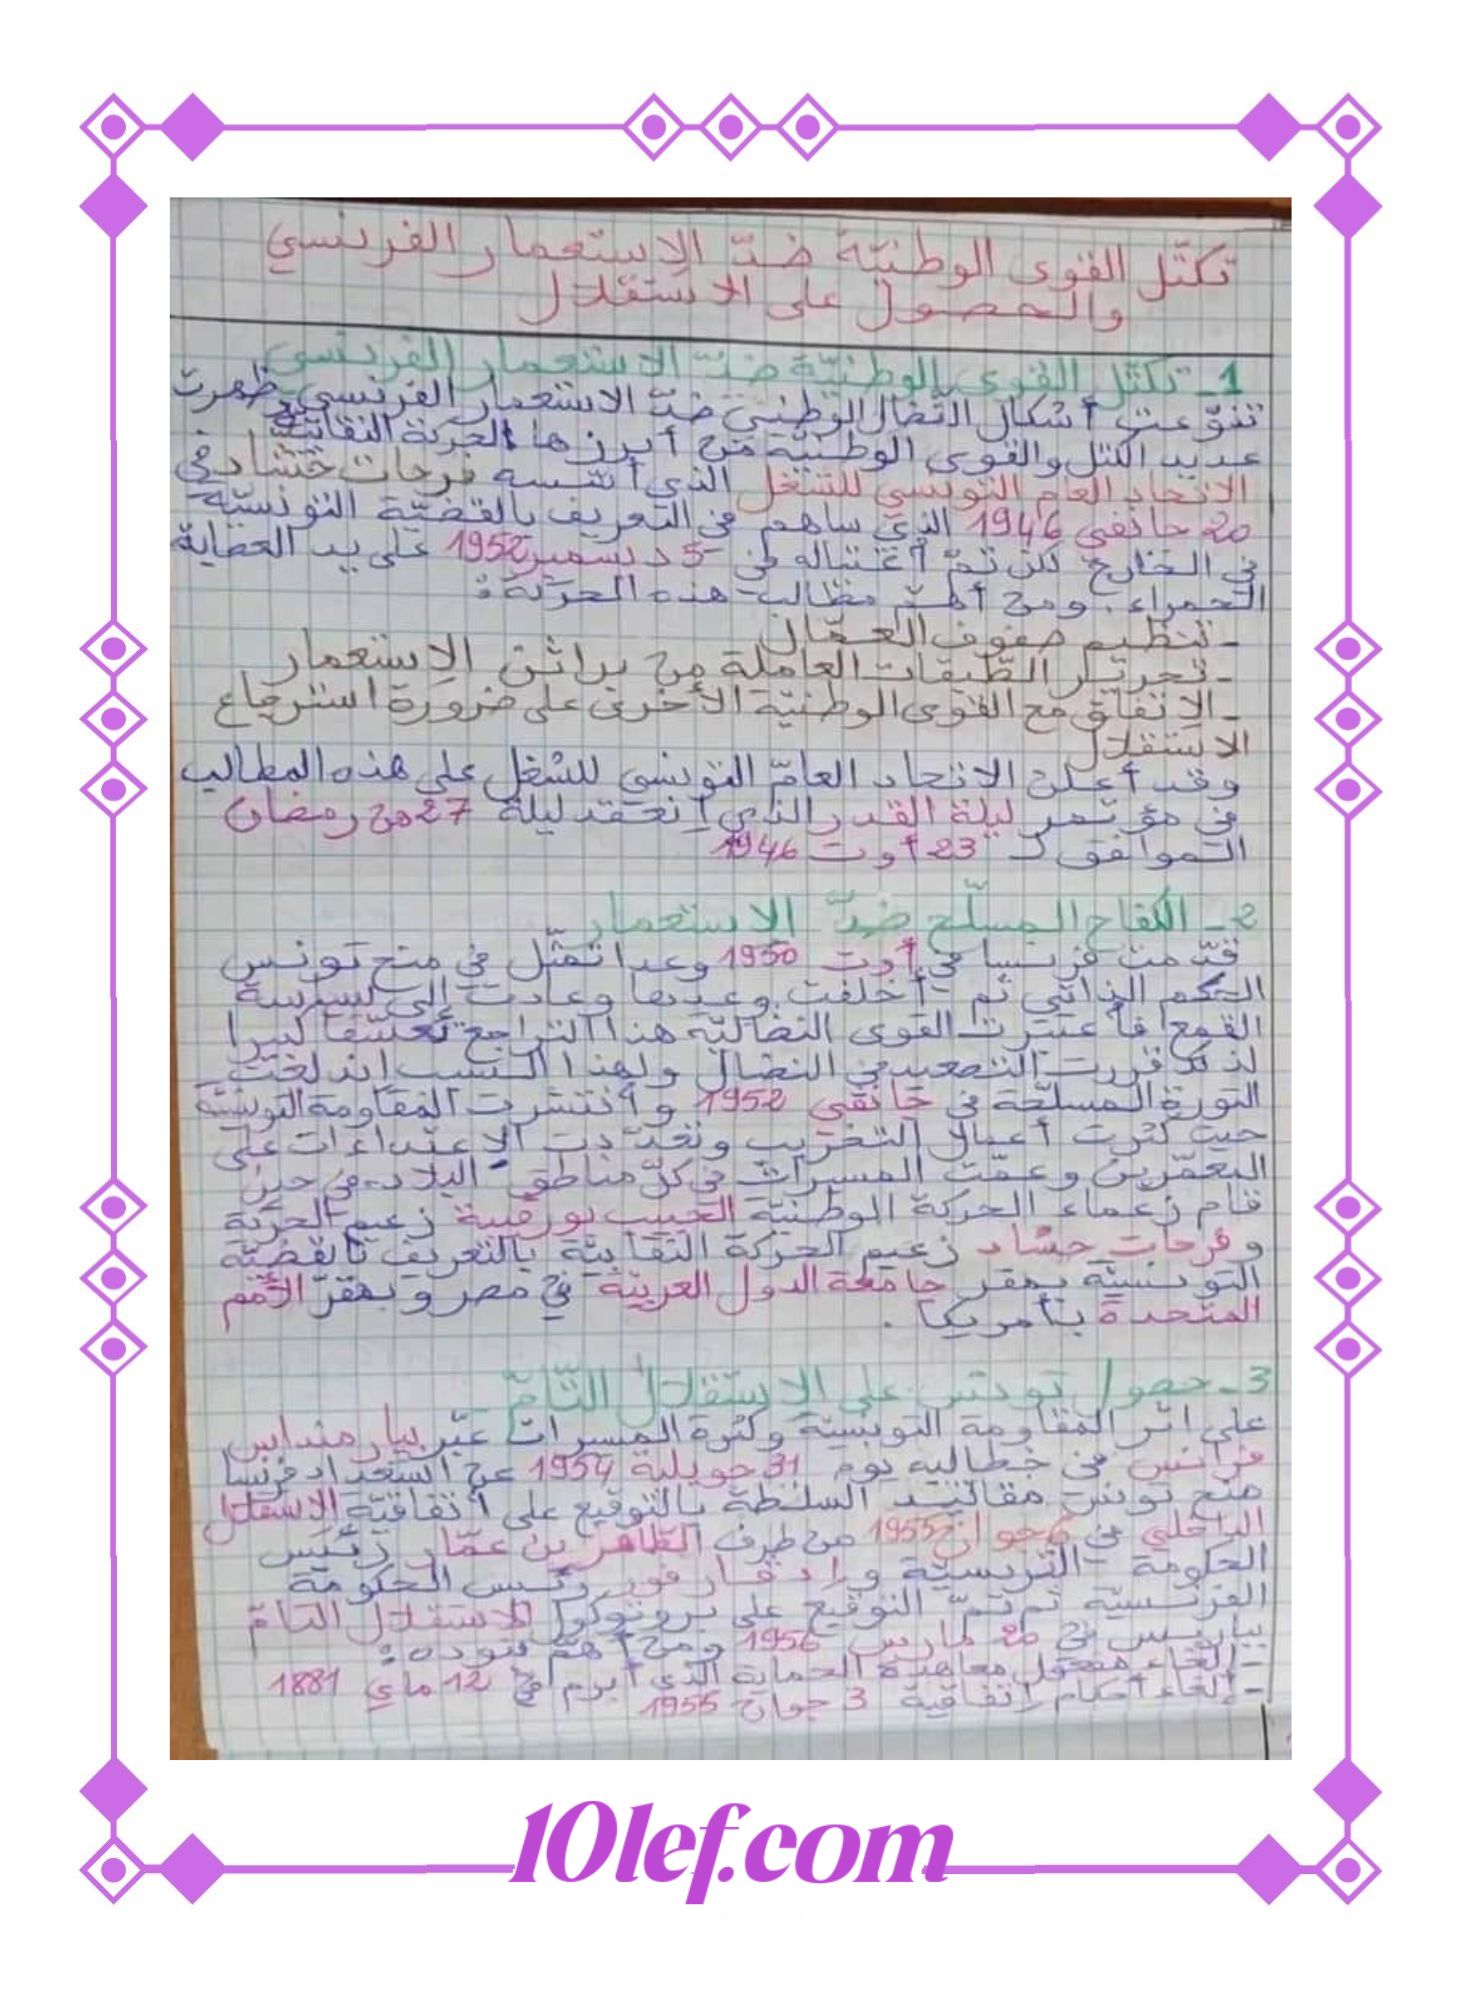 تكتّل القوى الوطنيّة ضدّ الاستعمار الفرنسي
والحصول على الاستقلال
1_ تكتّل القوى الوطنيّة ضدّ الاستعمار الفرنسي
تنوّعت أشكال النّضال الوطني ضدّ الاستعمار الفرنسي ظهرت
عديد الكتل والقوى الوطنيّة من أبرزها الحركة النقابيّة
الاتحاد العام التونسي للشغل الذي أسّسه فرحات حشاد في
20 جانفي 1946 الذي ساهم في التعريف بالقضيّة التونسيّة
في الخارج لكن تمّ اغتياله في 5 ديسمبر 1952 على يد العصابة
الحمراء. ومن أهمّ مطالب هذه الحركة:
_ تنظيم صفوف العمّال
_ تحرير الطبقات العاملة من براثن الإستعمار
_ الإتفاق مع القوى الوطنيّة الأخرى على ضرورة استرجاع
الاستقلال
وقد أعلن الاتحاد العامّ التونسي للشغل على هذه المطالب
في مؤتمر ليلة القدر الذي إنعقد ليلة 27 من رمضان
الموافق لـ 23 أوت 1946
2_ الكفاح المسلّح ضدّ الإستعمار
قدّمت فرنسا في أوت 1950 وعدا تمثّل في منح تونس
الحكم الذاتي ثم أخلفت وعدها وعادت إلى سياسة
القمع فأعتبرت القوى النضاليّة هذا التراجع تعسّفا كبيرا
لذلك قررت التصعيد في النضال ولهذا السبب إندلعت
الثورة المسلّحة في جانفي 1952 و أنتشرت المقاومة التونسيّة
حيث كثرت أعمال التخريب وتعدّدت الإعتداءات على
المعمّرين وعمّت المسيرات في كلّ مناطق البلاد. في حين
قام زعماء الحركة الوطنيّة الحبيب بورقيبة زعيم الحركة
و فرحات حشّاد زعيم الحركة النقابيّة بالتعريف بالقضيّة
التونسيّة بمقر جامعة الدول العربيّة في مصر و بمقرّ الأمم
المتحدة بأمريكا.
3_ حصول تونس على الإستقلال التّامّ
على اثر المقاومة التونسيّة وكثرة المسيرات عبّر بيار منداس
فرانس في خطابه يوم 31 جويلية 1954 عن استعداد فرنسا
منح تونس مقاليد السلطة بالتوقيع على أتفاقيّة الإستقلال
الداخلي في 3 جوان 1955 من طرف الطاهر بن عمّار رئيس
الحكومة التونسيّة و إدقار فور رئيس الحكومة
الفرنسيّة ثم تمّ التوقيع على بروتوكول الاستقلال التامّ
بباريس في 20 مارس 1956 ومن أهمّ بنوده:
_ إلغاء مفعول معاهدة الحماية الذي أبرم في 12 ماي 1881
_ إلغاء أحكام إتفاقية 3 جوان 1955
10lef.com